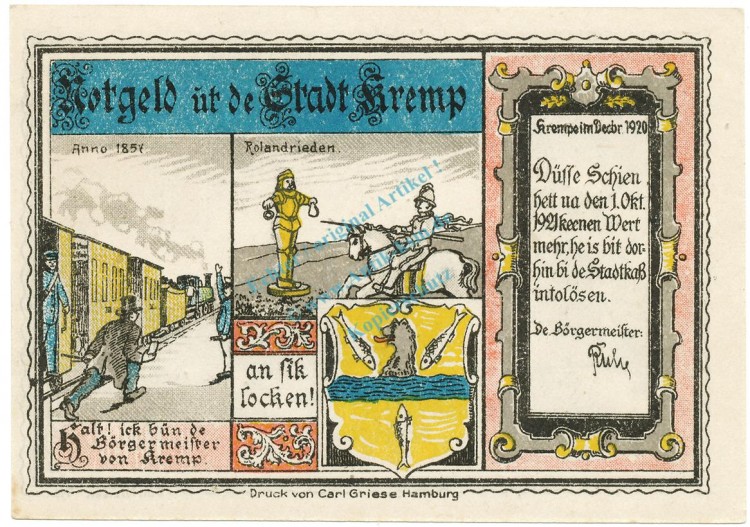 Notgeld üt de Stadt Kremp
Anno 1857
Rolandrieden.
an sik
locken!
Halt! ick bün de
Börgermeister
von Kremp.
Krempe im Decbr 1920
Düsse Schien
hett na den 1. Okt.
1921 keenen Wert
mehr, he is bit dor-
hin bi de Stadtkaß
intolösen.
De Börgermeister:
Druck von Carl Griese Hamburg
original Artikel!